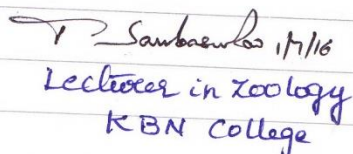 T. Sambasivarao 1/7/16
Lecturer in Zoology
KBN College